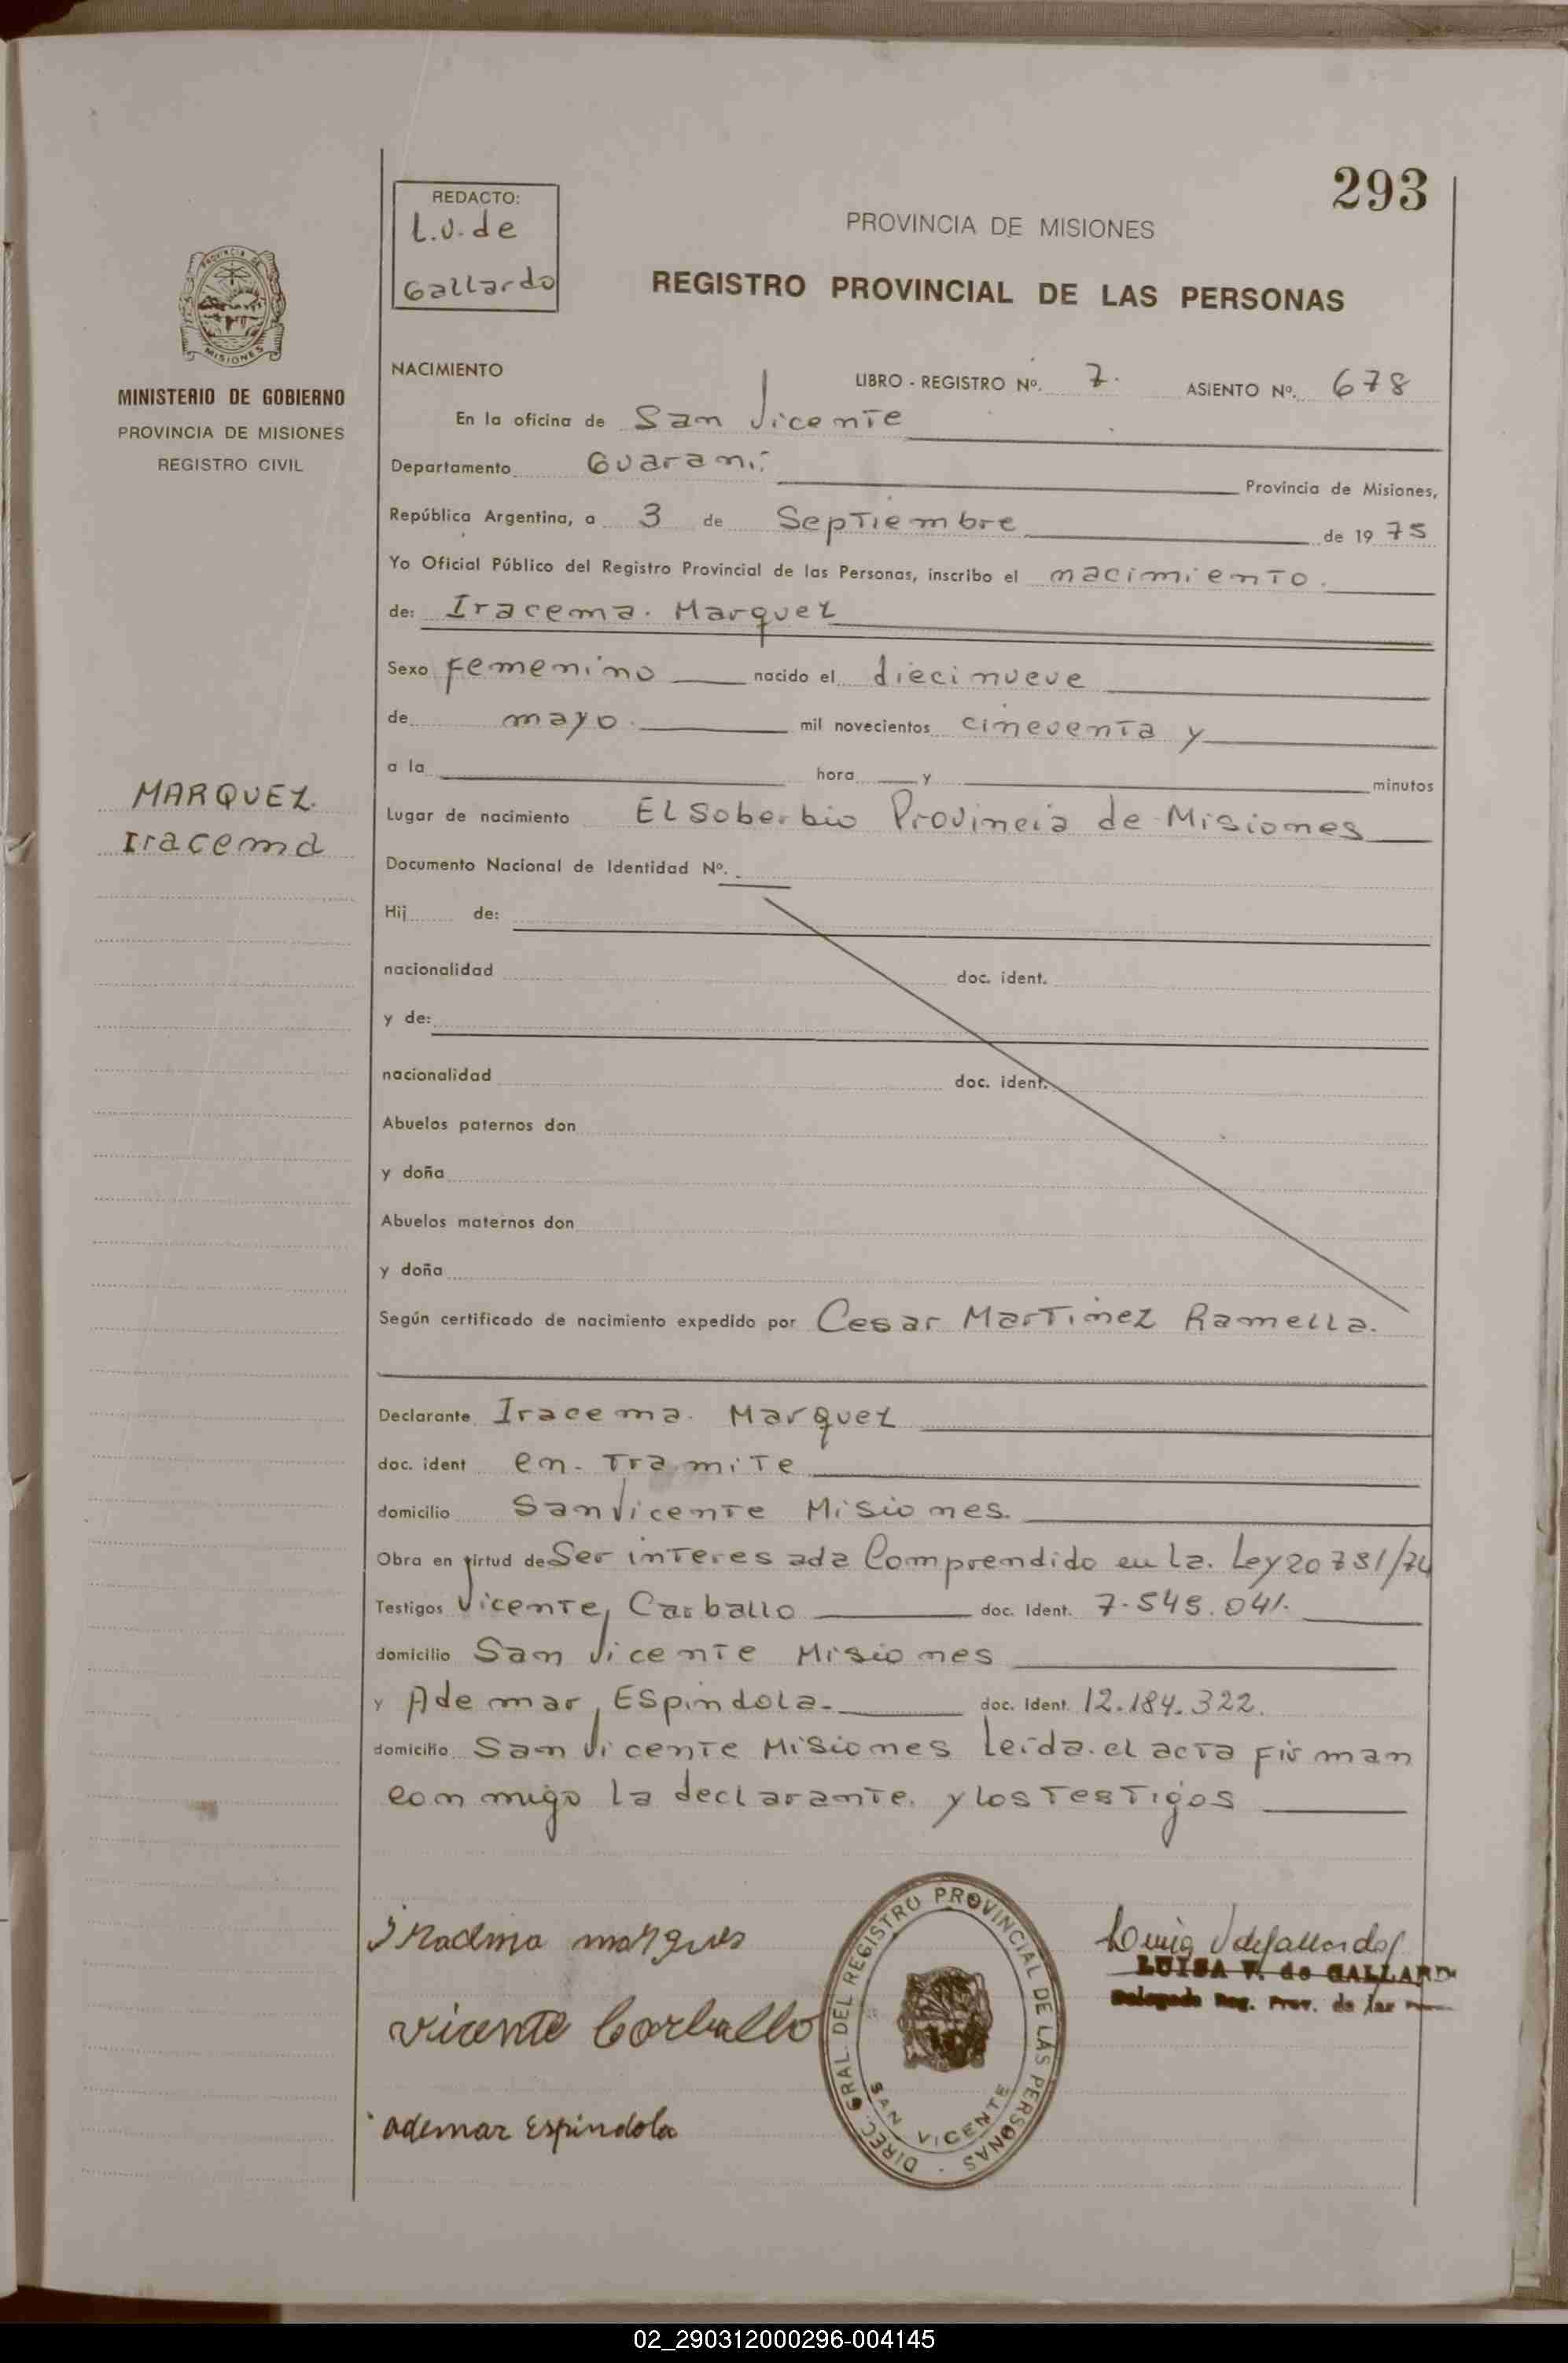 293
REDACTO:
L.V. de
Gallardo
PROVINCIA DE MISIONES
REGISTRO PROVINCIAL DE LAS PERSONAS
PROVINCIA DE
MISIONES
MINISTERIO DE GOBIERNO
PROVINCIA DE MISIONES
REGISTRO CIVIL
NACIMIENTO
LIBRO - REGISTRO Nº. 7. ASIENTO Nº. 678
En la oficina de San Vicente
Departamento Guaraní Provincia de Misiones,
República Argentina, a 3 de Septiembre de 1975
Yo Oficial Público del Registro Provincial de las Personas, inscribo el nacimiento.
de: Iracema. Marquez
Sexo femenino nacido el diecinueve
de mayo. mil novecientos cincuenta y
a la hora y minutos
MARQUEZ.
Iracema
Lugar de nacimiento El Soberbio Provincia de Misiones
Documento Nacional de Identidad Nº.
Hij de:
nacionalidad doc. ident.
y de:
nacionalidad doc. ident.
Abuelos paternos don
y doña
Abuelos maternos don
y doña
Según certificado de nacimiento expedido por Cesar Martinez Ramella.
Declarante Iracema. Marquez
doc. ident en-tramite
domicilio San Vicente Misiones.
Obra en virtud de Ser interesada Comprendido en la. Ley 20751/74
Testigos Vicente, Carballo doc. Ident. 7.545.041.
domicilio San Vicente Misiones
y Ademar, Espindola. doc. Ident. 12.184.322.
domicilio San Vicente Misiones Leida. el acta firman
conmigo la declarante. y los testigos
marques
vicente Carballo
ademar Espindola
DIREC. GRAL. DEL REGISTRO PROVINCIAL DE LAS PERSONAS
SAN VICENTE
Luisa V de Gallardo
LUISA V. de GALLARD
Delegada Reg. Prov. de las
02_290312000296-004145